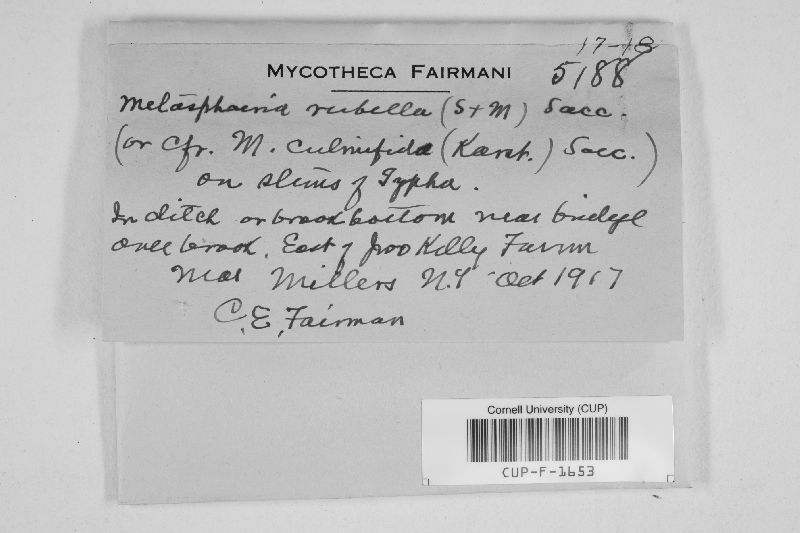 17-18
MYCOTHECA FAIRMANI 5188
Metasphaeria rubella (S+M) Sacc.
(or Cfr. M. culmifida (Karst.) Sacc.)
on stems of Typha.
In ditch or brook bottom near bridge
over brook. East of Kelly Farm
near Millers N.Y Oct 1917
C.E. Fairman
Cornell University (CUP)
CUP-F-1653